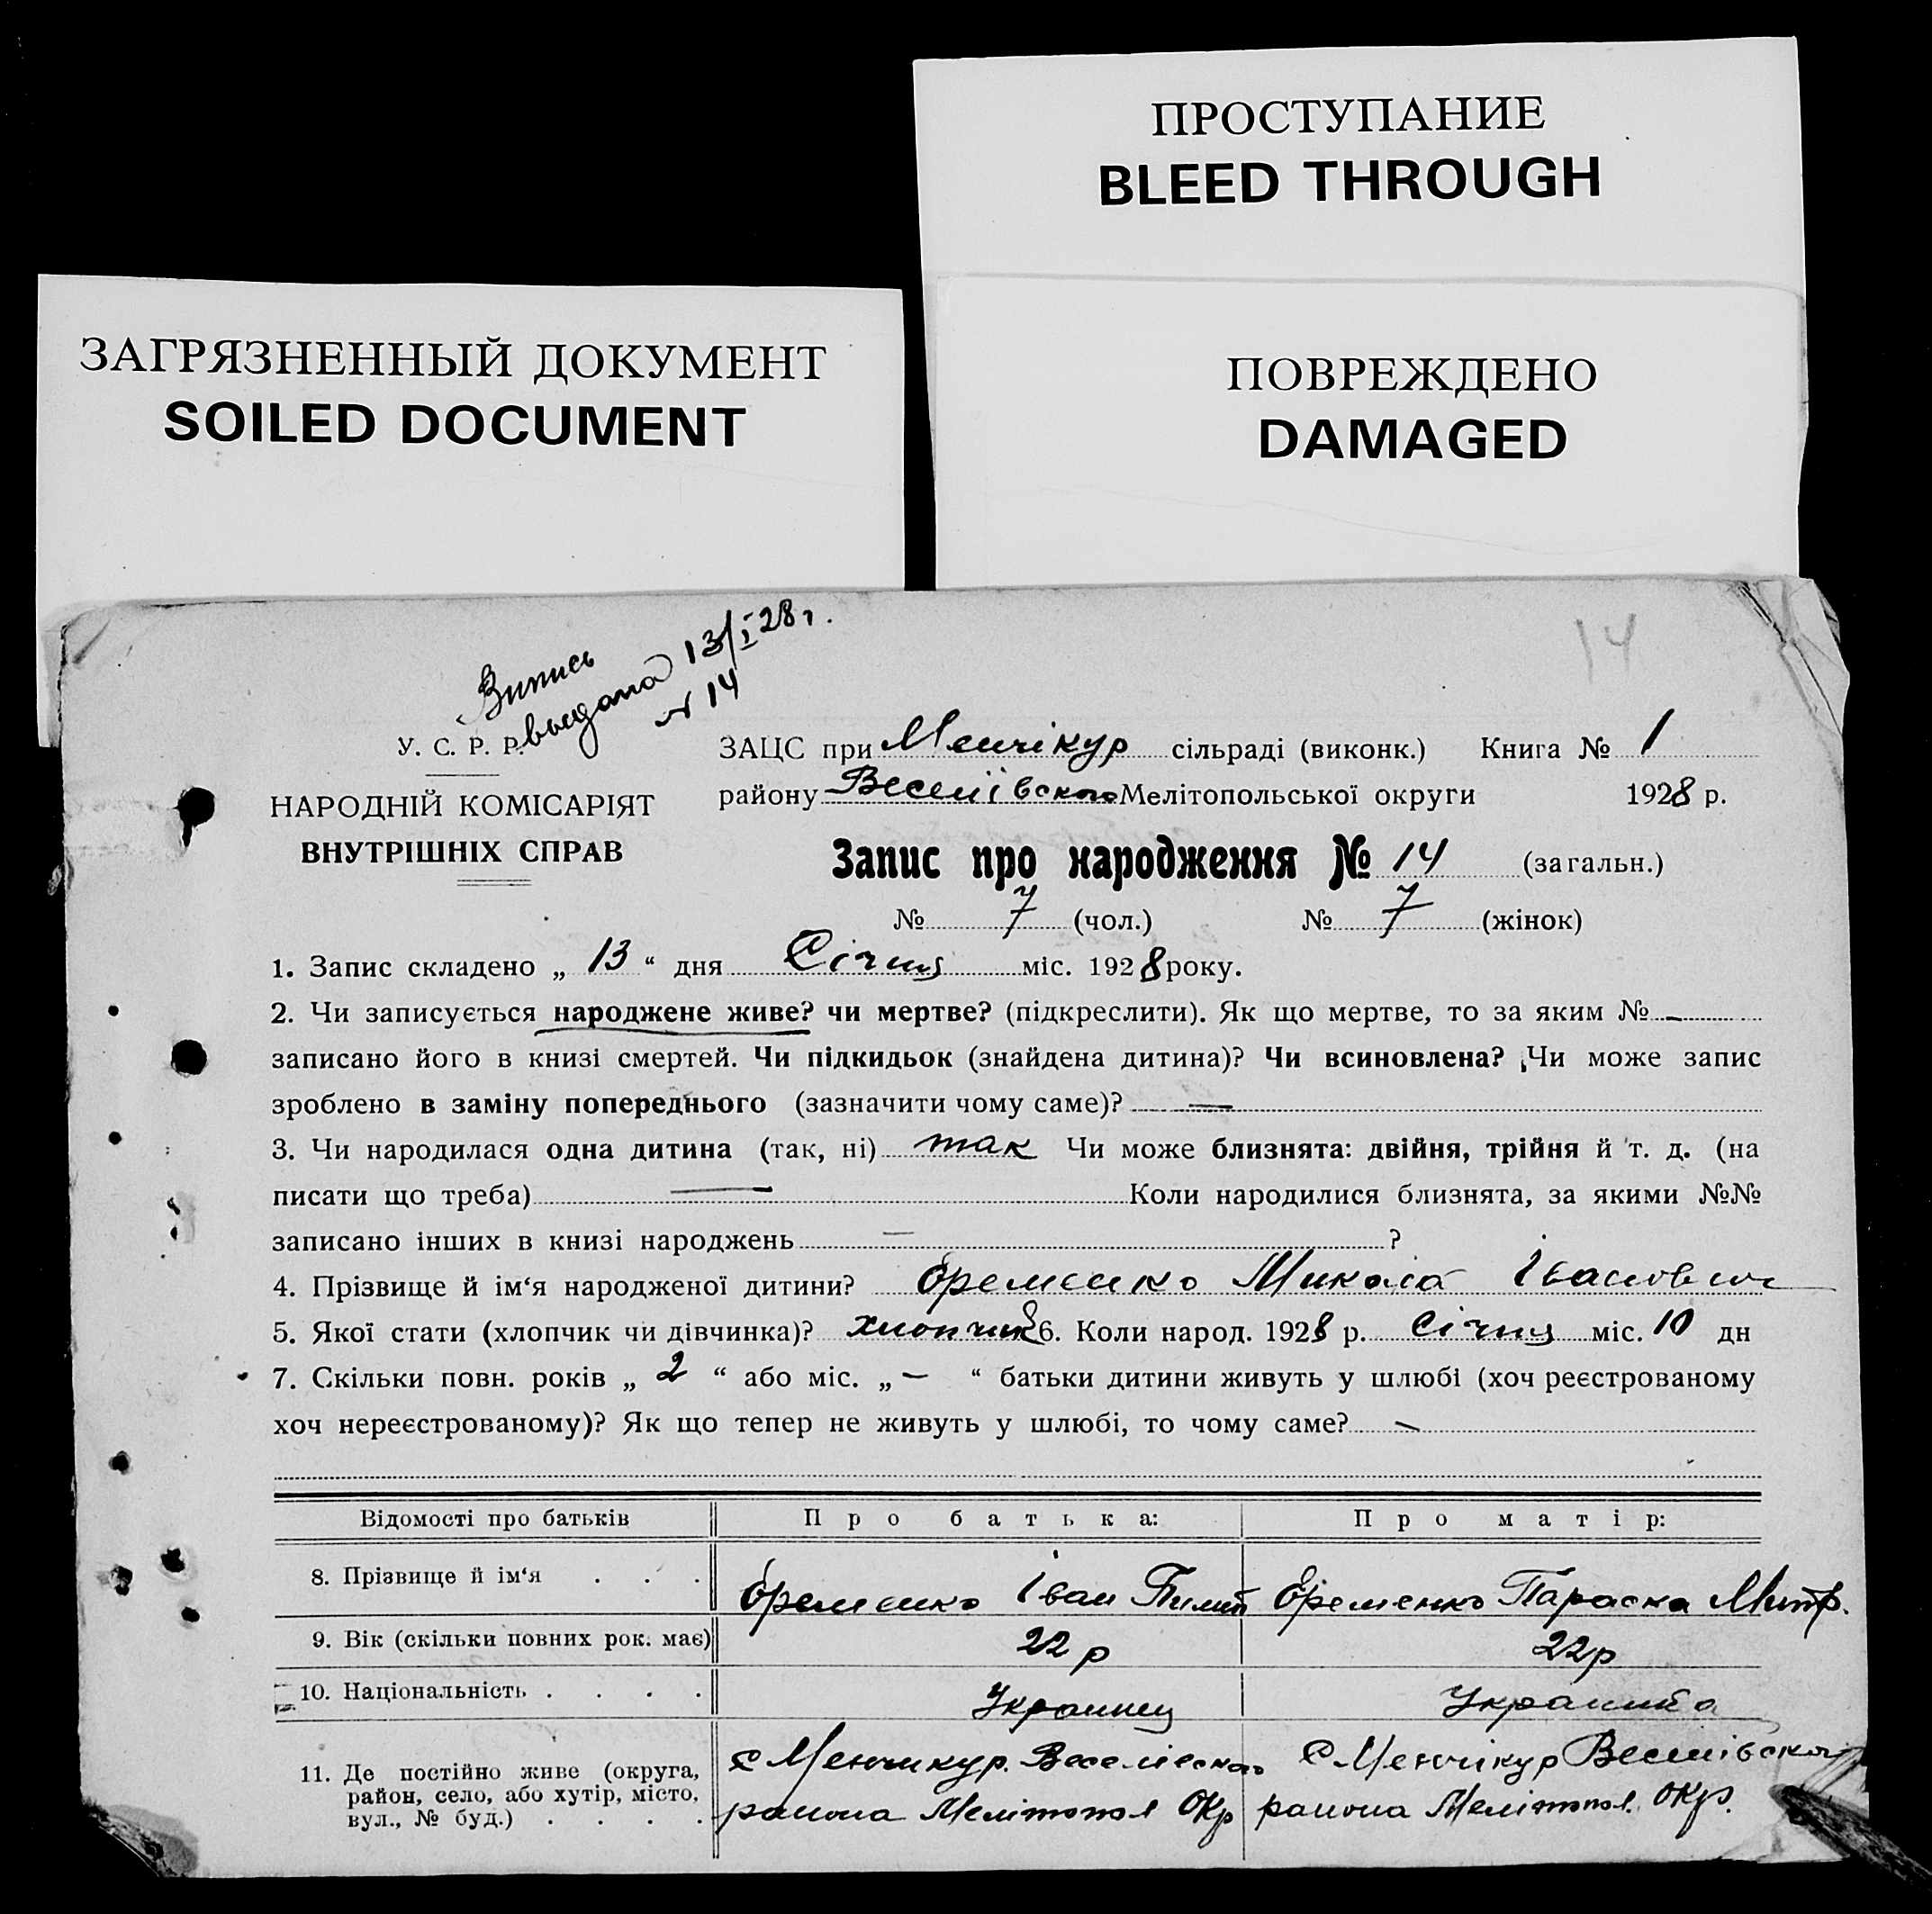 ПРОСТУПАНИЕ
BLEED THROUGH
ЗАГРЯЗНЕННЫЙ ДОКУМЕНТ
SOILED DOCUMENT
ПОВРЕЖДЕНО
DAMAGED
Випись
выдана 13/I 28 г.
№ 14
14
У. С. Р. Р.
НАРОДНІЙ КОМІСАРІЯТ
ВНУТРІШНІХ СПРАВ
ЗАЦС при Менчікур сільраді (виконк.) Книга № 1
району Веселівского Мелітопольської округи 1928 р.
Запис про народження № 14 (загальн.)
№ 7 (чол.) № 7 (жінок)
1. Запис складено „ 13 “ дня Січня міс. 1928 року.
2. Чи записується народжене живе? чи мертве? (підкреслити). Як що мертве, то за яким № —
записано його в книзі смертей. Чи підкидьок (знайдена дитина)? Чи всиновлена? Чи може запис
зроблено в заміну попереднього (зазначити чому саме)? —
3. Чи народилася одна дитина (так, ні) так Чи може близнята: двійня, трійня й т. д. (на
писати що треба) — Коли народилися близнята, за якими №№
записано інших в книзі народжень — ?
4. Прізвище й ім‘я народженої дитини? Єременко Микола Іванович
5. Якої стати (хлопчик чи дівчинка)? хлопчик 6. Коли народ. 1928 р. Січня міс. 10 дн
7. Скільки повн. років „ 2 “ або міс. „ — “ батьки дитини живуть у шлюбі (хоч реєстрованому
хоч нереєстрованому)? Як що тепер не живуть у шлюбі, то чому саме? —
Відомості про батьків Про батька: Про матір:
8. Прізвище й ім‘я . . . Єременко Іван Пилип Єременко Параска Митр.
9. Вік (скільки повних рок. має) 22 р 22 р
10. Національність . . . . Украинец Украинка
11. Де постійно живе (округа, район, село, або хутір, місто, вул., № буд.) . . . .
с Менчикур. Веселівского
района Мелітопол Окр
с Менчікур Веселівского
района Мелітопол. Окр.